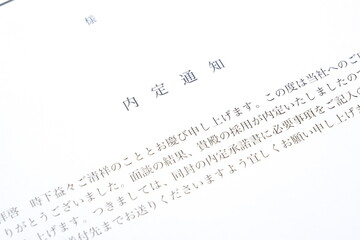 様
内定通知
拝啓 時下益々ご清祥のこととお慶び申し上げます。この度は当社へのご
りがとうございました。面談の結果、貴殿の採用が内定いたしましたのご
上げます。つきましては、同封の内定承諾書に必要事項をご記入の
付先までお送りくださいますよう宜しくお願い申し上げ